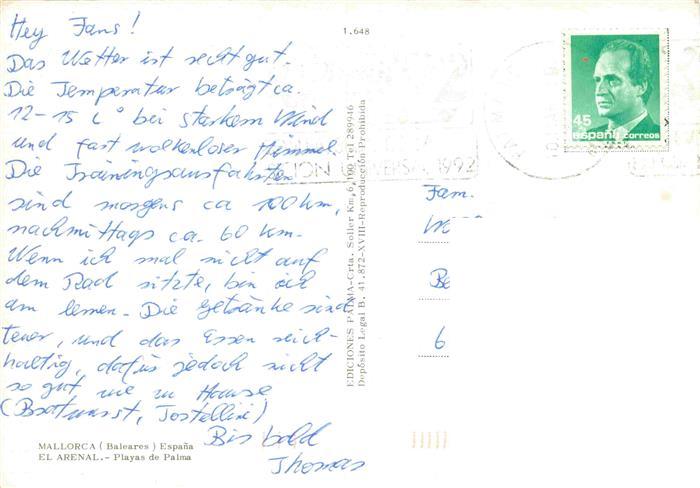 Hey Fans!
Das Wetter ist recht gut.
Die Temperatur beträgt ca.
12-15 C° bei starkem Wind
und fast wolkenloser Himmel.
Die Trainingsausfahrten
sind morgens ca 100 km,
nachmittags ca. 60 km.
Wenn ich mal nicht auf
dem Rad sitzte, bin ich
am lernen. Die Getränke sind
teuer, und das Essen reich-
haltig, dafür jedoch nicht
so gut wie zu Hause
(Bratwurst, Tostellini)
Bis bald
Thomas
MALLORCA (Baleares) España
EL ARENAL.- Playas de Palma
1.648
EDICIONES PALMA-Crta. Soller Km. 6,100 Tel 289946
Depósito Legal B. 41.872-XVIII-Reproducción Prohibida
45
españa correos
1992
Fam.
Be
6